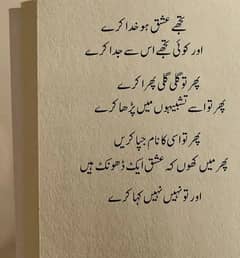 تجھے عشق ہو خدا کرے
اور کوئی تجھے اس سے جدا کرے
پھر تو گلی گلی پھرا کرے
پھر تو اسے تشبیہوں میں پڑھا کرے
پھر تو اسی کا نام جپا کریں
پھر میں کہوں کہ عشق ایک ڈھونگ ہیں
اور تو نہیں نہیں کہا کرے